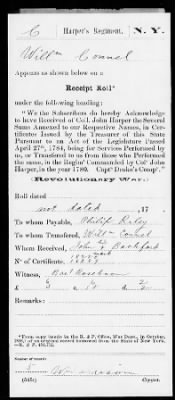 C Harper's Regiment. N.Y.
Will^m Connel
Appears as shown below on a
Receipt Roll*
under the following heading:
"We the Subscribers do hereby Acknowledge
to have Received of Col. John Harper the Several
Sums Annexed to our Respective Names, in Certificates
Issued by the Treasurer of this State
Pursuant to an Act of the Legislature Passed
April 27th, 1784, being for Services Performed by us,
or Transfered to us from those who Performed
the same, in the Regim^t Commanded by Col^o
Harper, in the year 1780. Capt^n Drake's Comp^y."
Revolutionary War.
Roll dated
not dated, 17 .
To whom Payable, Philip Riley
To whom Transferred, Will^m Connel
When Received, John
N^o of Certificate,
Witness,
£
Remarks:
*From copy books in the R. & P. Office, War Dept.,
Number of record:
5
Copyist.